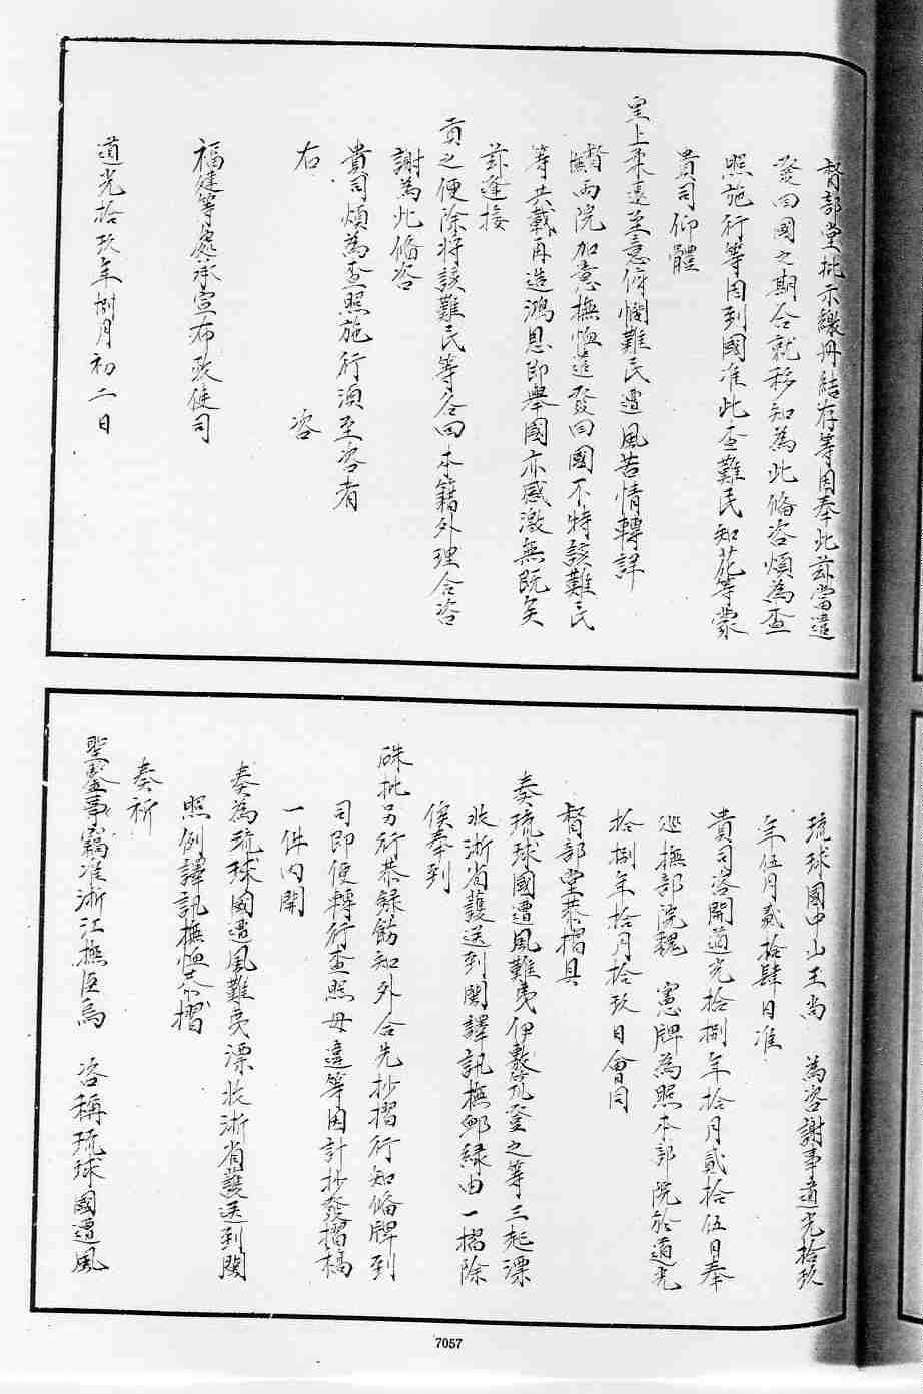 督部堂批示繳册結存等因奉此茲當遣
發回國之期合就移知為此脩咨煩為查
照施行等因到國准此查難民知花等蒙
貴司仰體
皇上柔遠至意俯憫難民遭風苦情轉詳
督兩院加意撫恤遣發回國不特該難民
等共戴再造鴻恩即舉國亦感激無既矣
茲逢接
貢之便除將該難民等令回本籍外理合咨
謝為此脩咨
貴司煩為查照施行須至咨者
右 咨
福建等處承宣布政使司
道光拾玖年捌月初二日
琉球國中山王尚 為咨謝事道光拾玖
年伍月貳拾肆日准
貴司咨開道光拾捌年拾月貳拾伍日奉
巡撫部院魏 憲牌為照本部院於道光
拾捌年拾月拾玖日會同
督部堂恭摺具
奏琉球國遭風難夷伊敷筑登之等三起漂
收浙省護送到閩譯訊撫卹緣由一摺除
俟奉到
硃批另行恭錄飭知外合先抄摺行知脩牌到
司即便轉行查照毋違等因計抄發摺稿
一件內開
奏為琉球國遭風難夷漂收浙省護送到閩
照例譯訊撫恤恭摺
奏祈
聖鑒事竊准浙江撫臣烏 咨稱琉球國遭風
7057